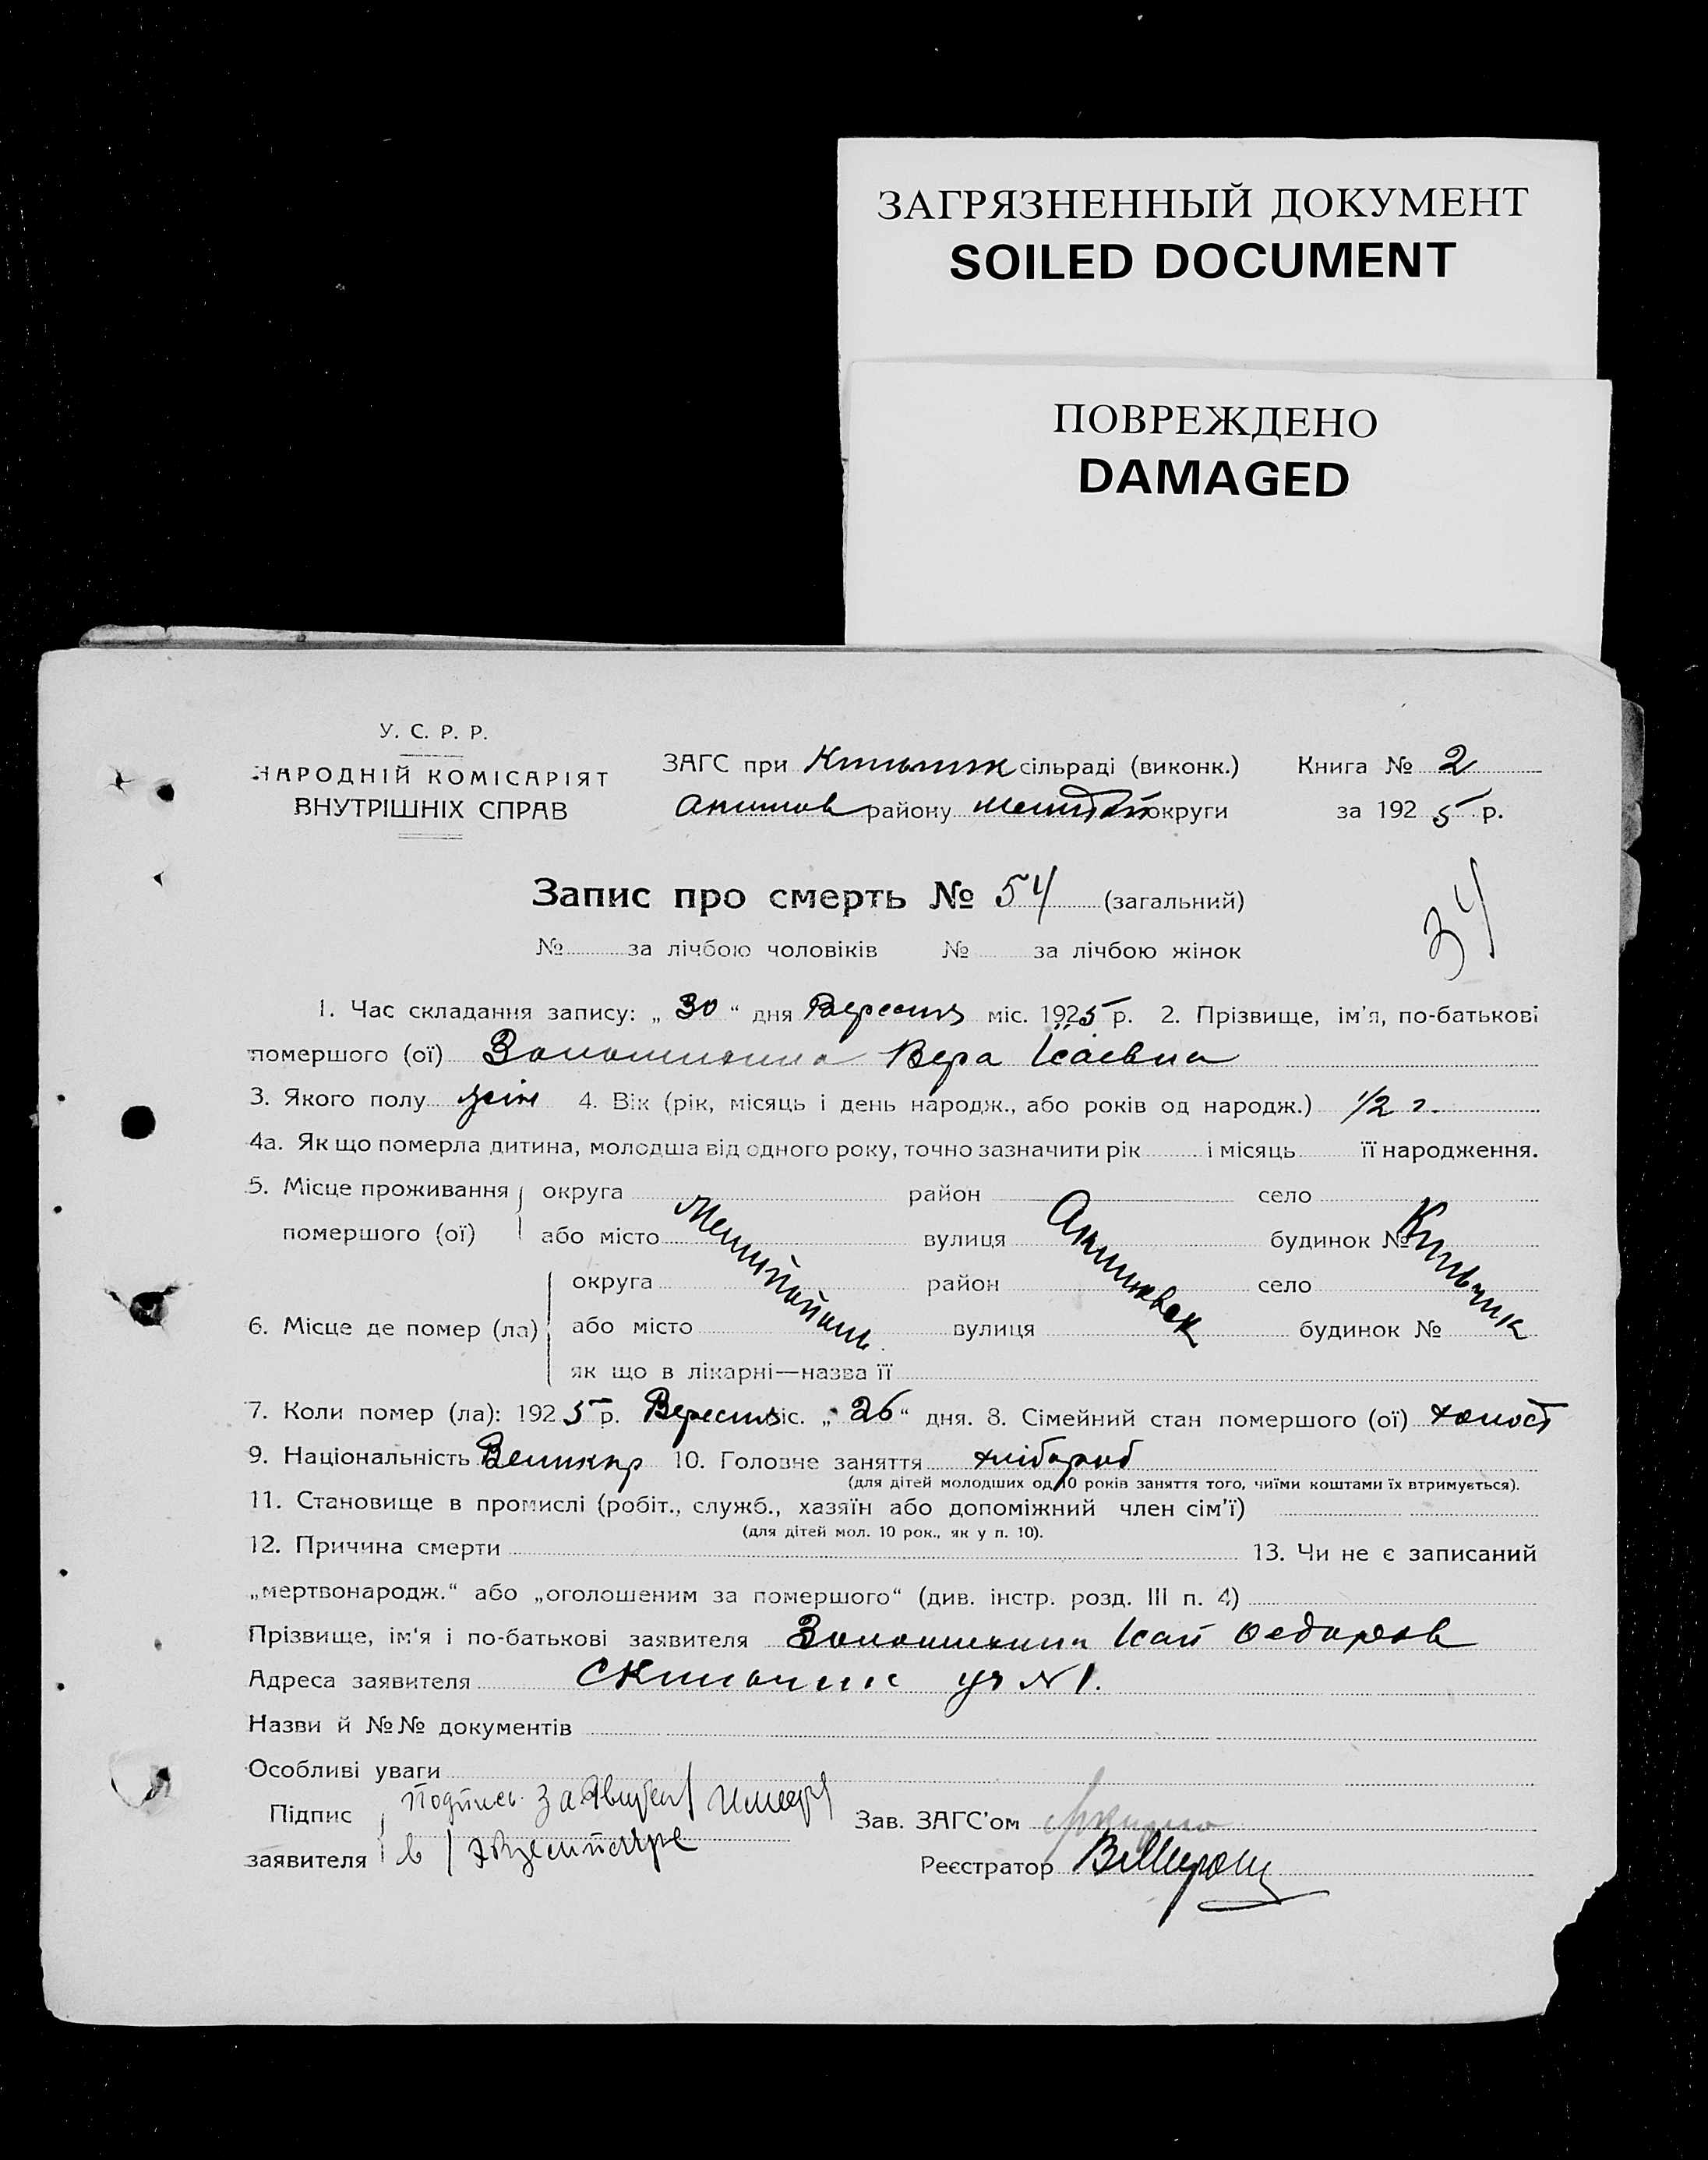 ЗАГРЯЗНЕННЫЙ ДОКУМЕНТ
SOILED DOCUMENT
ПОВРЕЖДЕНО
DAMAGED
У. С. Р. Р.
НАРОДНІЙ КОМІСАРІЯТ
ВНУТРІШНІХ СПРАВ
ЗАГС при сільраді (виконк.) Книга № 2
Акимов району Мелитоп округи за 1925 р.
Запис про смерть № 54 (загальний)
34
№ за лічбою чоловіків № за лічбою жінок
1. Час складання запису: „ 30 “ дня Вересня міс. 1925 р. 2. Прізвище, ім'я, по-батькові
помершого (ої) Вера Ісаевна
3. Якого полу жін 4. Вік (рік, місяць і день народж., або років од народж.) 1/2 г.
4а. Як що померла дитина, молодша від одного року, точно зазначити рік і місяць її народження.
5. Місце проживання округа район село
помершого (ої) або місто вулиця будинок №
Мелитопол Акимовск Кильчик
округа район село
6. Місце де помер (ла) або місто вулиця будинок №
як що в лікарні—назва її
7. Коли помер (ла): 1925 р. Вересня міс. „ 26 “ дня. 8. Сімейний стан помершого (ої) холост
9. Національність Великор 10. Головне заняття хлібороб
(для дітей молодших од 10 років заняття того, чиїми коштами їх втримується).
11. Становище в промислі (робіт., служб., хазяїн або допоміжний член сім'ї)
(для дітей мол. 10 рок., як у п. 10).
12. Причина смерти 13. Чи не є записаний
„мертвонародж.“ або „оголошеним за помершого“ (див. інстр. розд. III п. 4)
Прізвище, ім'я і по-батькові заявителя Ісай Федоров
Адреса заявителя С Кильчик уч N 1.
Назви й №№ документів
Особливі уваги
Підпис Подпись заявител
заявителя в Экземпляре
Зав. ЗАГС'ом
Реєстратор